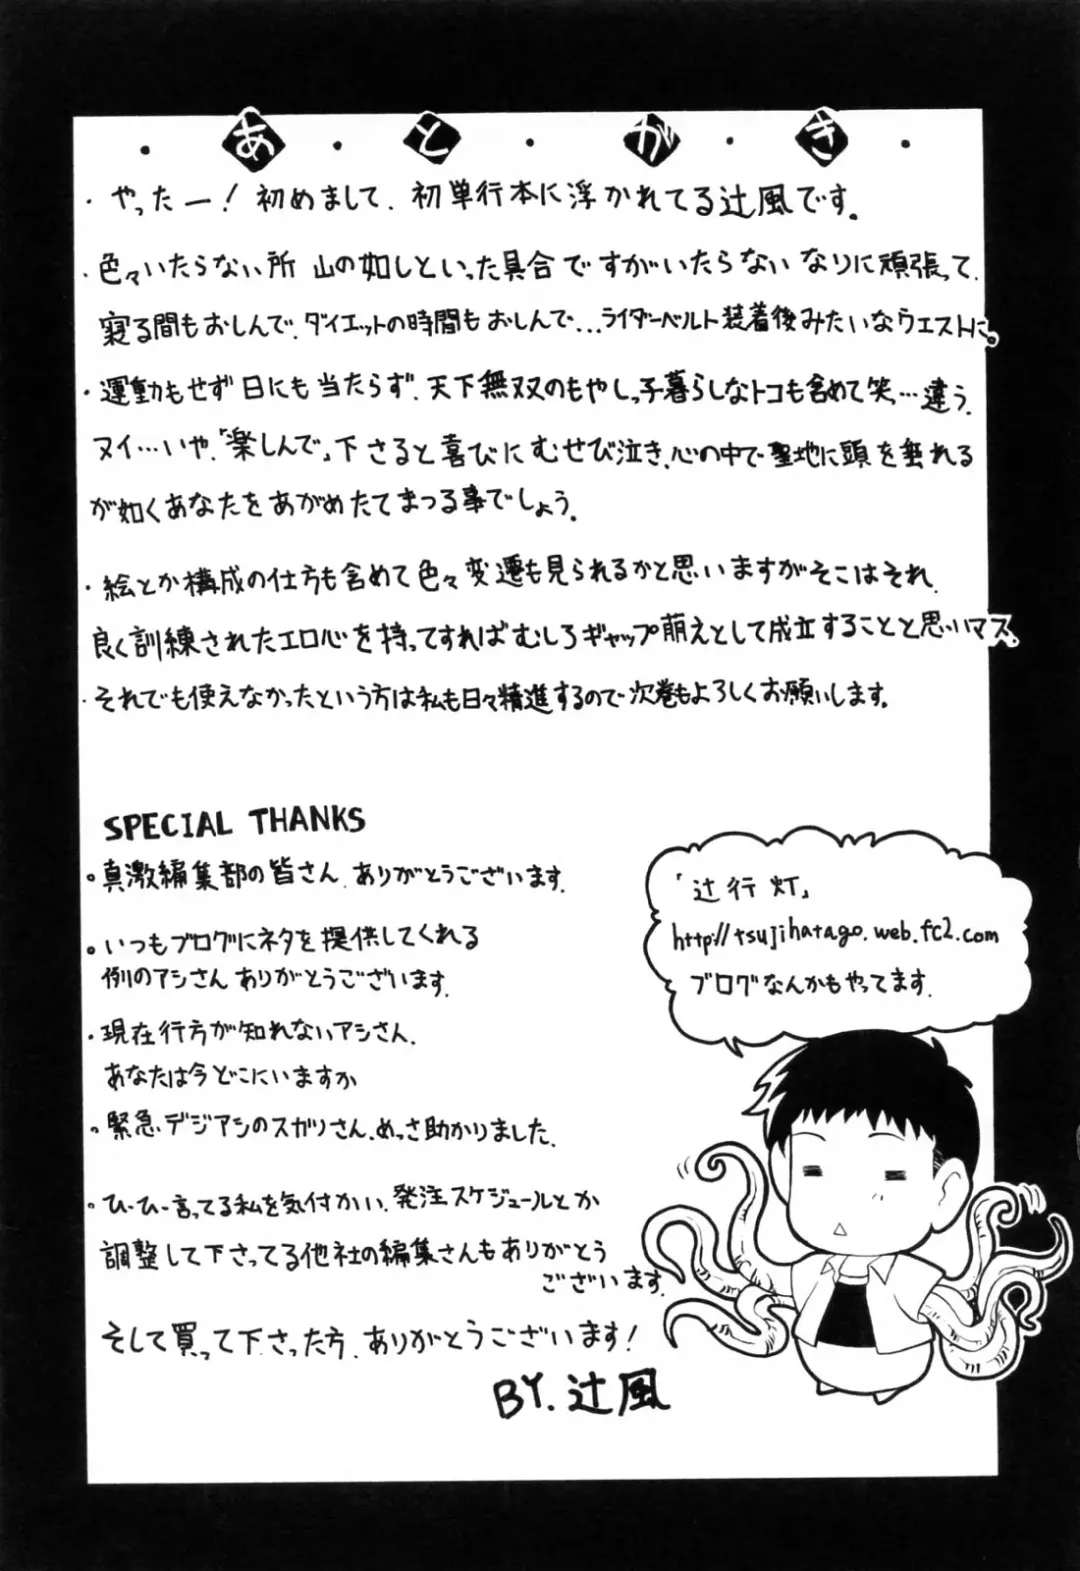 ・あ・と・が・き・
・やったー！初めまして、初単行本に浮かれてる辻風です。
・色々いたらない所 山の如しといった具合ですがいたらないなりに頑張って、
寝る間もおしんで、ダイエットの時間もおしんで…ライダーベルト装着後みたいなウエストに。
・運動もせず日にも当たらず、天下無双のもやしっ子暮らしなトコも含めて笑っ…違う、
ヌイ…いや、「楽しんで」下さると喜びにむせび泣き、心の中で聖地に頭を垂れる
が如くあなたをあがめたてまつる事でしょう。
・絵とか構成の仕方も含めて色々変遷も見られるかと思いますがそこはそれ、
良く訓練されたエロ心を持ってすればむしろギャップ萌えとして成立することと思いマス、
・それでも使えなかったという方は私も日々精進するので次巻もよろしくお願いします。
SPECIAL THANKS
。真激編集部の皆さん、ありがとうございます。
。いつもブログにネタを提供してくれる
例のアシさん ありがとうございます。
・現在行方が知れないアシさん、
あなたは今どこにいますか
。緊急デジアシのスガリさん、めっさ助かりました。
。ひーひー言ってる私を気付かい、発注スケジュールとか
調整して下さってる他社の編集さんもありがとう
ございます。
そして買って下さった方、ありがとうございます！
BY.辻風
「辻行灯」
http://tsujihatago.web.fc2.com
ブログなんかもやってます。